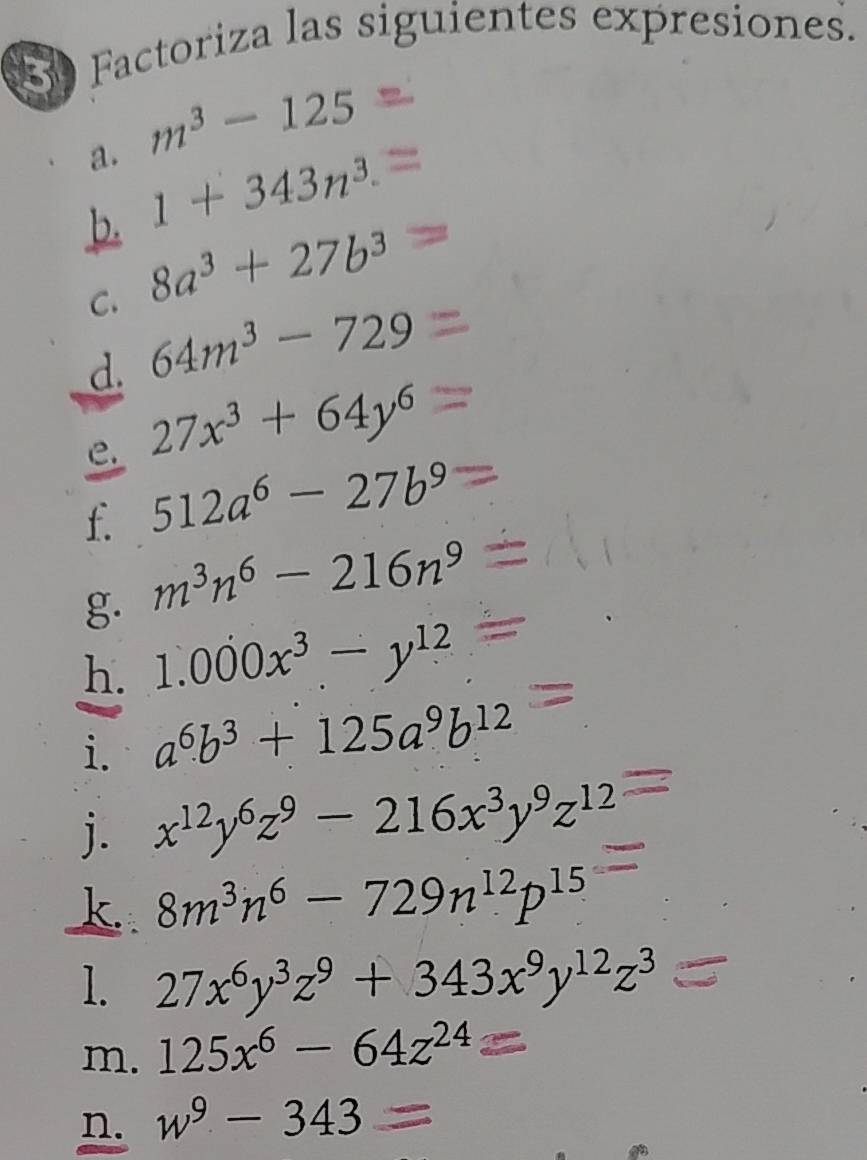 3 Factoriza las siguientes expresiones.
a. m³ − 125 =
b. 1 + 343n³. =
c. 8a³ + 27b³ =
d. 64m³ − 729 =
e. 27x³ + 64y⁶ =
f. 512a⁶ − 27b⁹ =
g. m³n⁶ − 216n⁹ =
h. 1.000x³ − y¹² =
i. a⁶b³ + 125a⁹b¹² =
j. x¹²y⁶z⁹ − 216x³y⁹z¹² =
k. 8m³n⁶ − 729n¹²p¹⁵ =
l. 27x⁶y³z⁹ + 343x⁹y¹²z³ =
m. 125x⁶ − 64z²⁴ =
n. w⁹ − 343 =